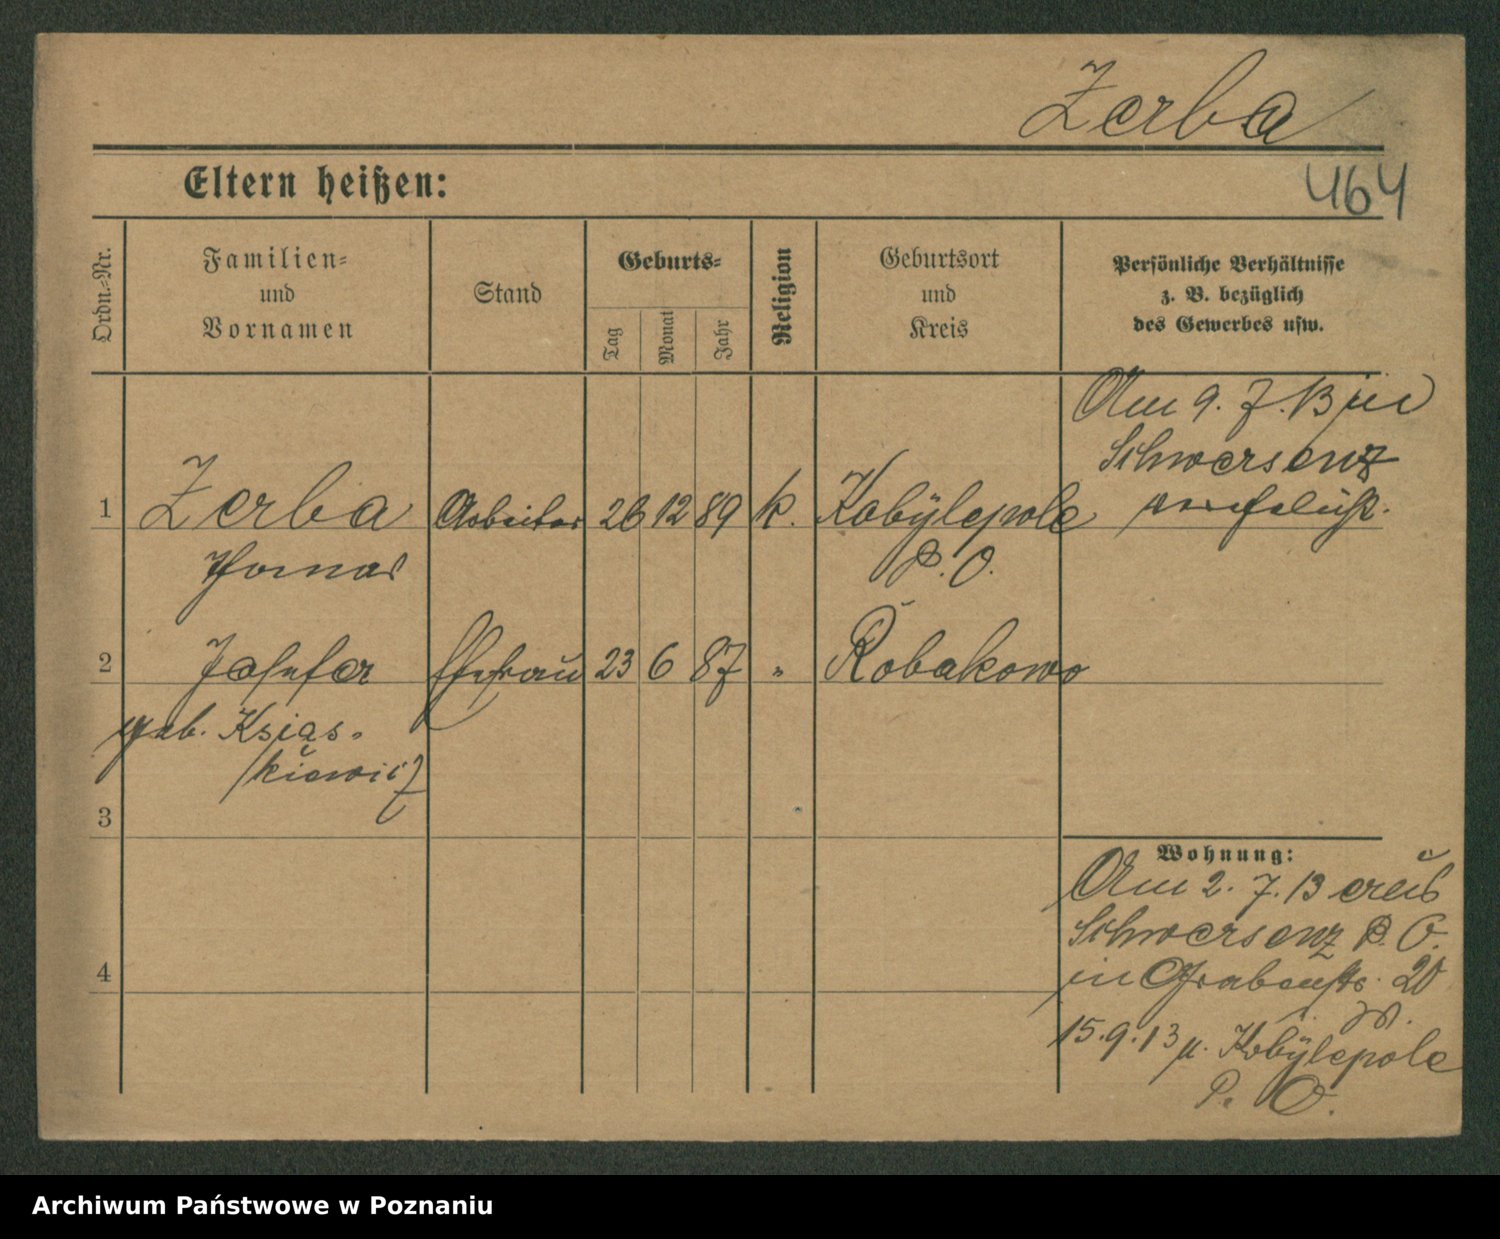 Zerba
464
Eltern heißen:
Ordn.-Nr.
Familien-
und
Vornamen
Stand
Geburts-
Tag
Monat
Jahr
Religion
Geburtsort
und
Kreis
Persönliche Verhältnisse
z. B. bezüglich
des Gewerbes usw.
Am 9. 7. 13 in
Schwersenz
1 Zerba Arbeiter 26 12 89 k. Kobylepole
Thomas P. O.
2 Josefa Ehefrau 23 6 87 " Robakowo
geb. Ksias-
kiewicz
3
Wohnung:
Am 2. 7. 13 aus
Schwersenz P. O.
in Grabenstr. 20
4
15.9.13 n. Kobylepole
P. O.
Archiwum Państwowe w Poznaniu